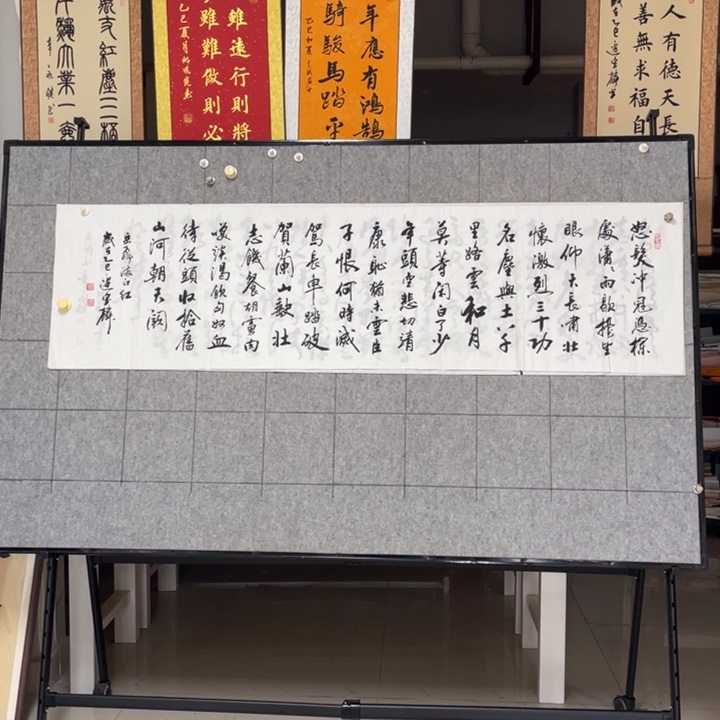 人有德天長
善無求福自
年應有鴻鵠
騎駿馬踏平
雖遠行則將
雖難做則必
乙巳夏月
紅塵二
業一
怒髮冲冠憑欄
處瀟瀟雨歇擡望
眼仰天長嘯壯
懷激烈三十功
名塵與土八千
里路雲和月
莫等閑白了少
年頭空悲切靖
康恥猶未雪臣
子恨何時滅
駕長車踏破
賀蘭山缺壯
志饑餐胡虜肉
笑談渴飲匈奴血
待從頭收拾舊
山河朝天闕
岳飛滿江紅
歲在乙巳